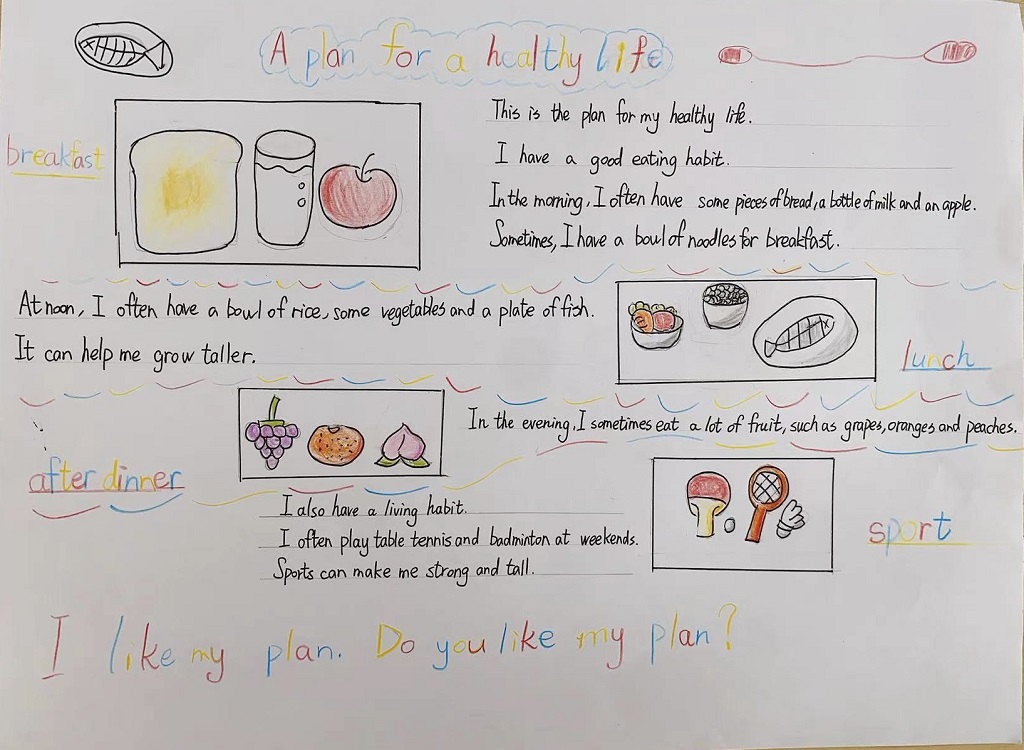 A plan for a healthy life
breakfast
This is the plan for my healthy life.
I have a good eating habit.
In the morning, I often have some pieces of bread, a bottle of milk and an apple.
Sometimes, I have a bowl of noodles for breakfast.
At noon, I often have a bowl of rice, some vegetables and a plate of fish.
It can help me grow taller.
lunch
In the evening, I sometimes eat a lot of fruit, such as grapes, oranges and peaches.
after dinner
I also have a living habit.
I often play table tennis and badminton at weekends.
Sports can make me strong and tall.
sport
I like my plan. Do you like my plan?